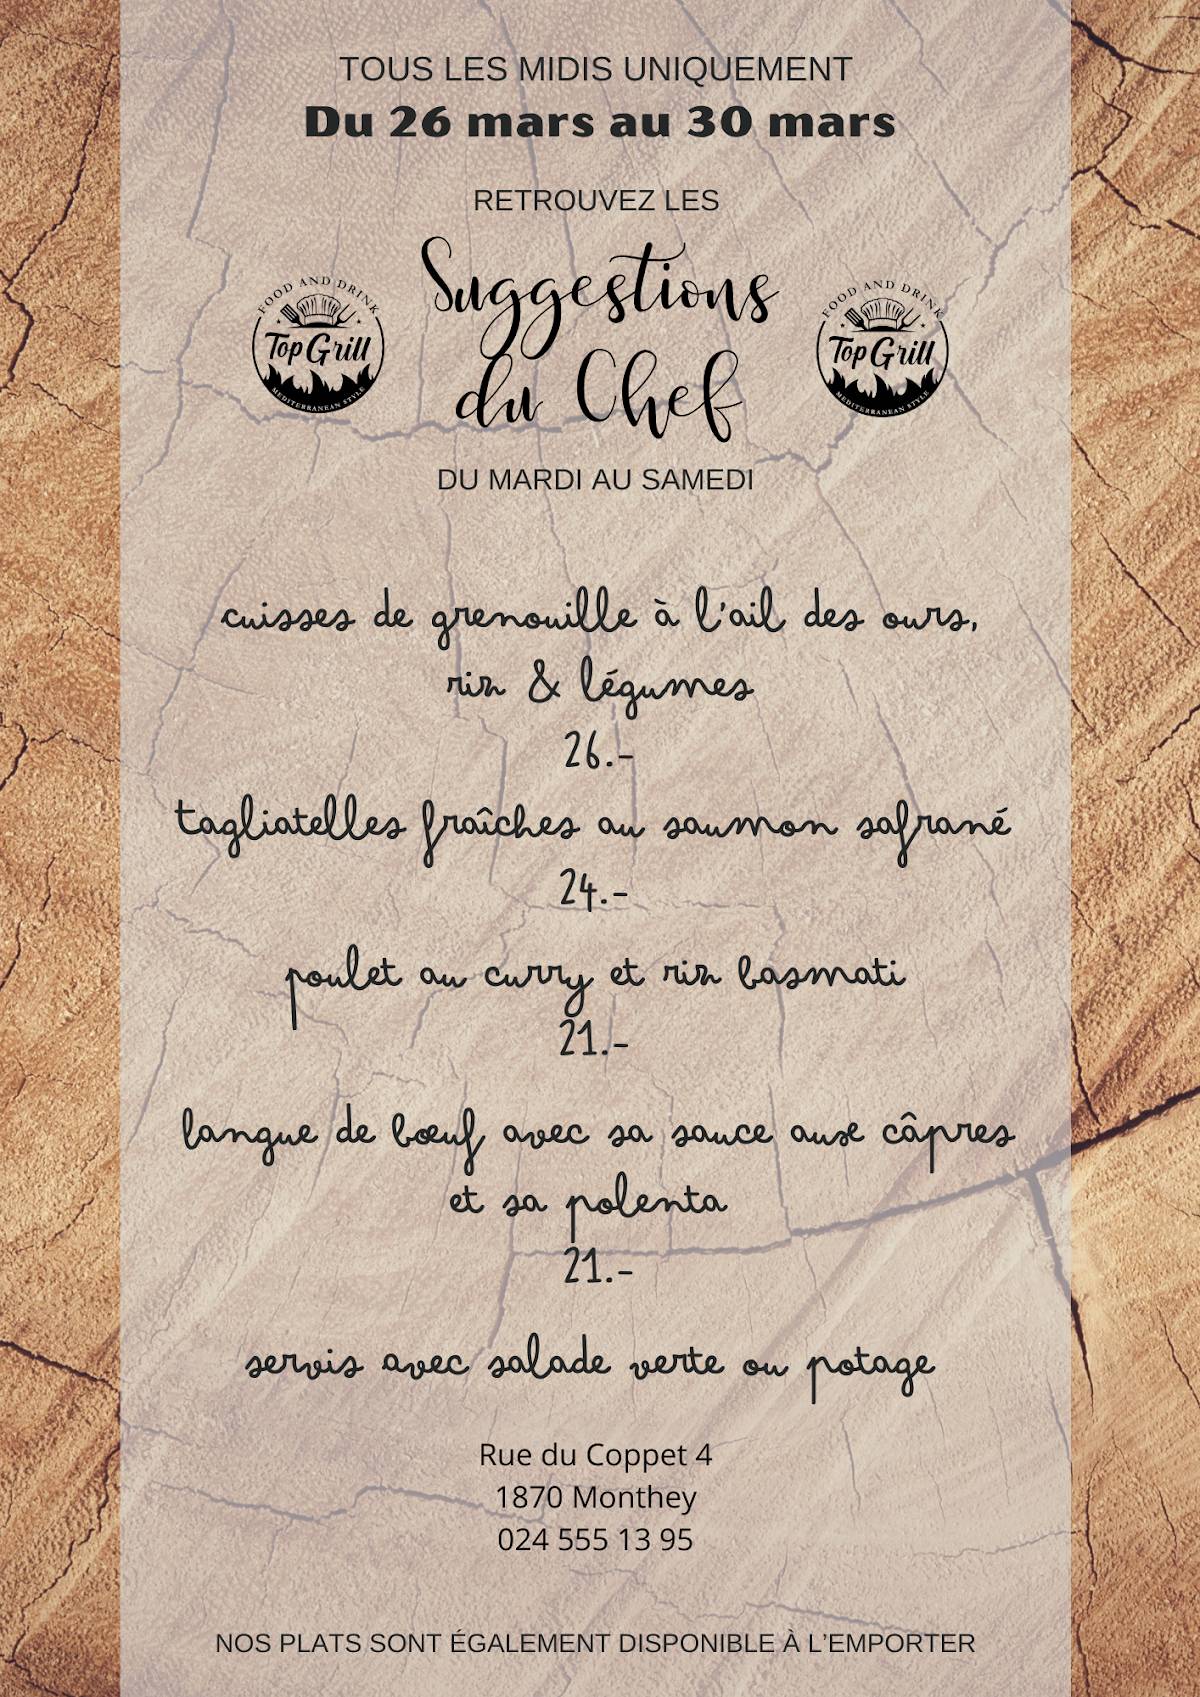 TOUS LES MIDIS UNIQUEMENT
Du 26 mars au 30 mars
RETROUVEZ LES
Suggestions
du Chef
FOOD AND DRINK
Top Grill
MEDITERRANEAN STYLE
FOOD AND DRINK
Top Grill
MEDITERRANEAN STYLE
DU MARDI AU SAMEDI
cuisses de grenouille à l'ail des ours,
riz & légumes
26.-
tagliatelles fraîches au saumon safrané
24.-
poulet au curry et riz basmati
21.-
langue de bœuf avec sa sauce aux câpres
et sa polenta
21.-
servis avec salade verte ou potage
Rue du Coppet 4
1870 Monthey
024 555 13 95
NOS PLATS SONT ÉGALEMENT DISPONIBLE À L'EMPORTER